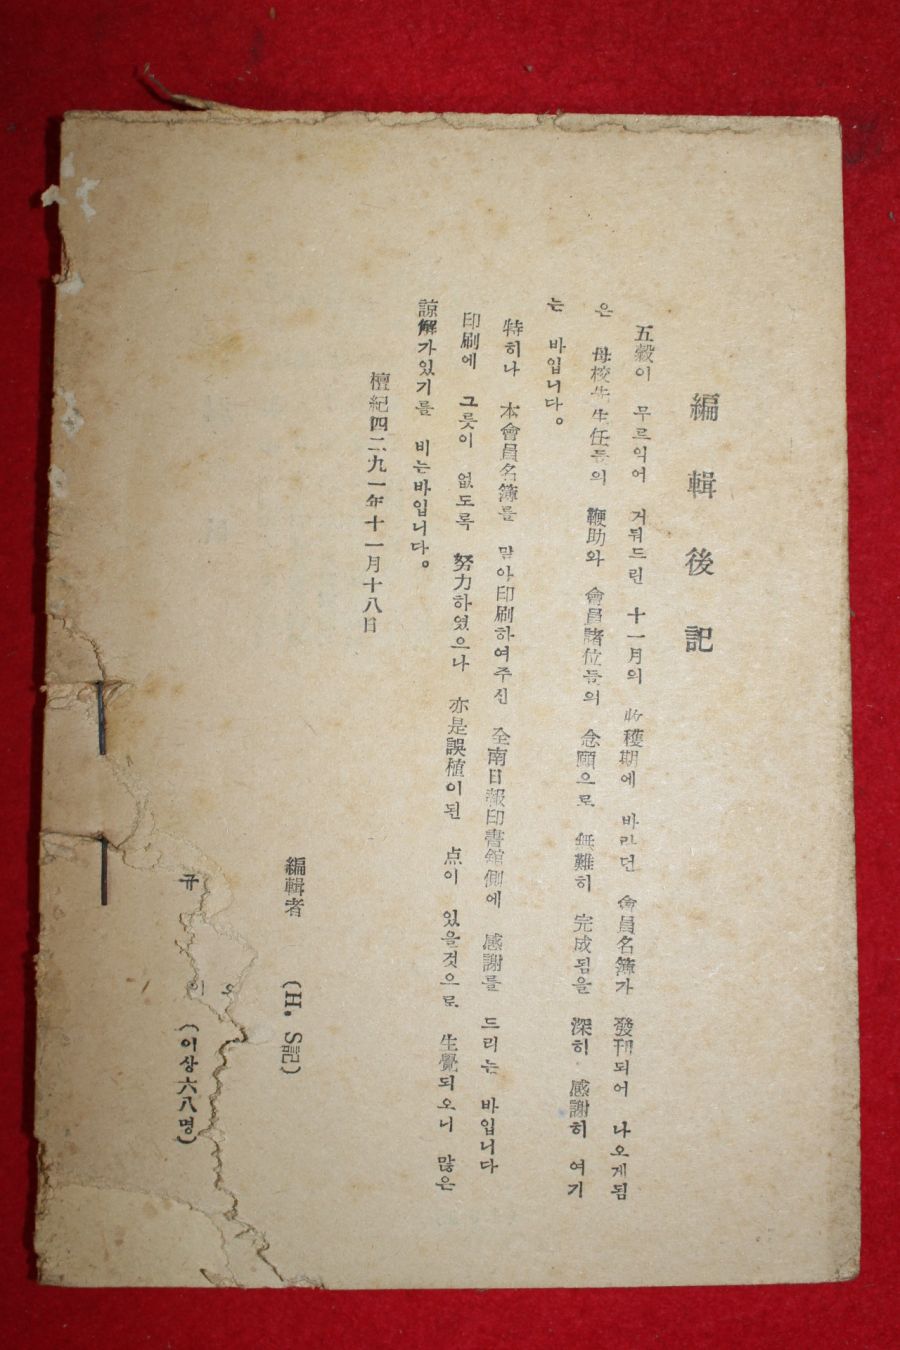 編輯後記
五穀이 무르익어 거둬드린 十一月의 收穫期에 바라던 會員名簿가 發刊되어 나오게됨
은 母校先生任들의 鞭助와 會員諸位들의 念願으로 無難히 完成됨을 深히 感謝히 여기
는 바입니다。
特히나 本會員名簿를 맡아印刷하여주신 全南日報印書舘側에 感謝를 드리는 바입니다
印刷에 그릇이 없도록 努力하였으나 亦是誤植이된 点이 있을것으로 生覺되오니 많은
諒解가있기를 비는바입니다。
檀紀四二九一年十一月十八日
編輯者 (H. S記)
규
(이상六八명)